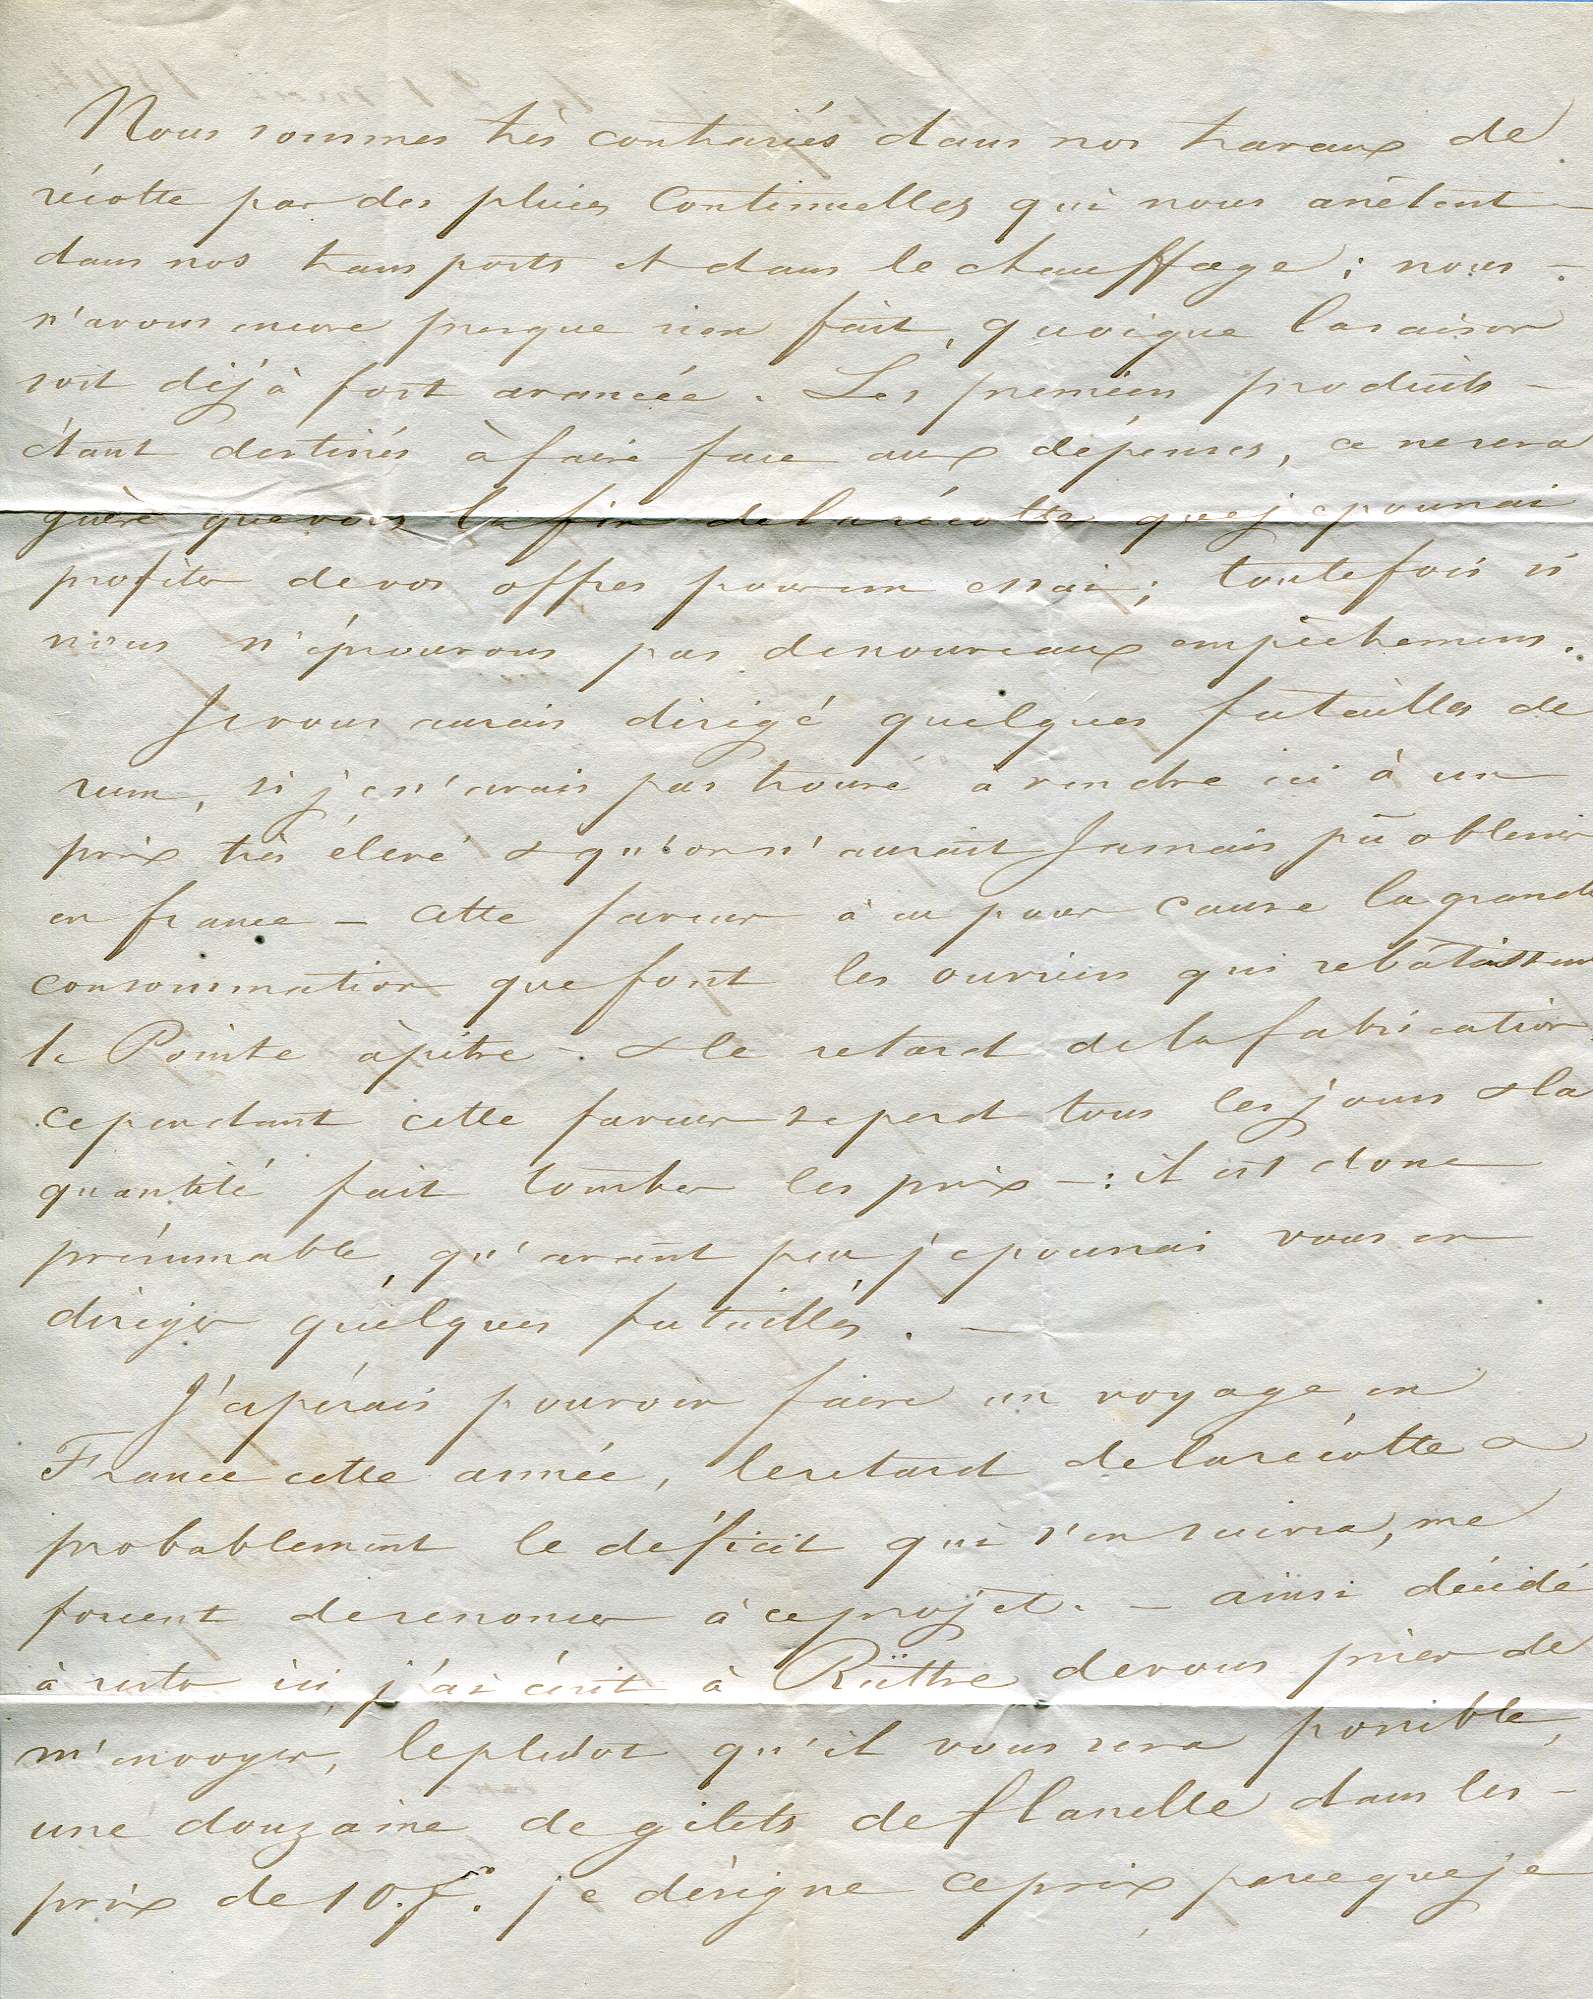 Nous sommes très contrariés dans nos travaux de
récolte par des pluies continuelles qui nous arrêtent
dans nos transports et dans le chauffage ; nous
n'avons encore presque rien fait, quoique la saison
soit déjà fort avancée. Les premiers produits
étant destinés à faire face aux dépenses, ce ne sera
guère que vers la fin de la récolte que je pourrai
profiter de vos offres pour un essai ; toutefois si
nous n'éprouvons pas de nouveaux empèchemens.
Je vous aurais dirigé quelques futailles de
rum, si je n'avais pas trouvé à vendre ici à un
prix très élevé & qu'on n'aurait jamais pû obtenir
en france — cette faveur à eu pour cause la grande
consommation que font les ouvriers qui rebâtissent
la Pointe àpitre — & le retard de la fabrication
cependant cette faveur se perd tous les jours & la
quantité fait tomber les prix — : il est donc
présumable qu'avant peu je pourrai vous en
diriger quelques futailles. —
J'espérais pouvoir faire un voyage en
France cette année, le retard de la récolte &
probablement le déficit qui s'en suivra, me
forcent de renoncer à ce projet. — ainsi décidé
à rester ici, j'ai écrit à de vous prier de
m'envoyer, le plutot qu'il vous sera possible,
une douzaine de gilets de flanelle dans les
prix de 10.f. je désigne ce prix parceque je